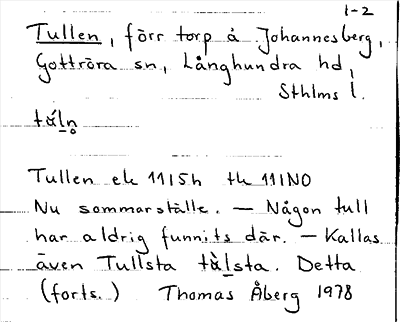 1-2
Tullen, förr torp å Johannesberg,
Gottröra sn, Långhundra hd,
Sthlms l.
tál̠n̥
Tullen ek 11I5h tk 11IN0
Nu sommarställe. — Någon tull
har aldrig funnits där. — Kallas
även Tullsta tàl̠sta. Detta
(forts.) Thomas Åberg 1978